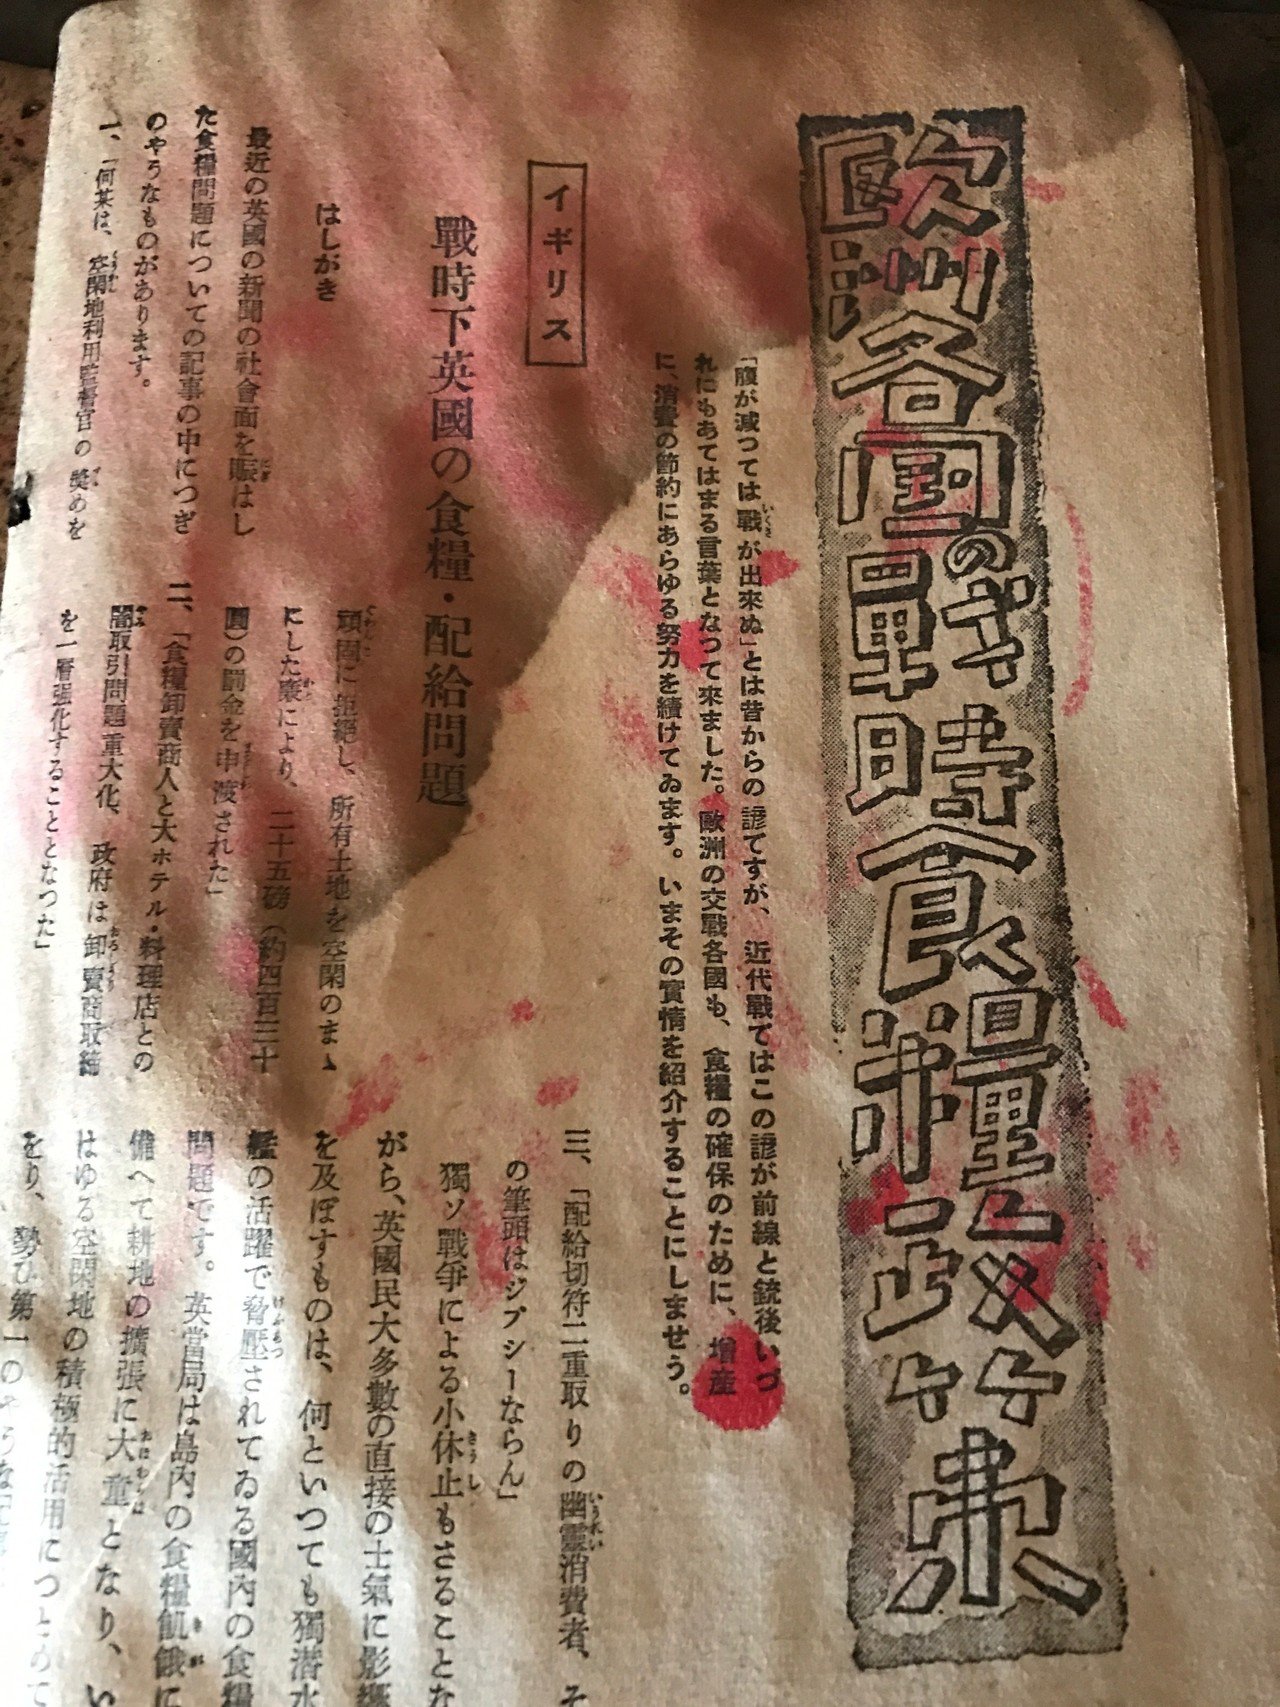 歐洲各國の戰時食糧政策
「腹が減つては戰が出來ぬ」とは昔からの諺ですが、近代戰ではこの諺が前線と銃後いづ
れにもあてはまる言葉となつて來ました。歐洲の交戰各國も、食糧の確保のために、增産
に、消費の節約にあらゆる努力を續けてゐます。いまその實情を紹介することにしませう。
イギリス
戰時下英國の食糧・配給問題
はしがき
最近の英國の新聞の社會面を賑はし
た食糧問題についての記事の中につぎ
のやうなものがあります。
一、「何某は、空閑地利用監督官の奬めを
頑固に拒絕し、所有土地を空閑のまゝ
にした廉により、二十五磅(約四百三十
圓)の罰金を申渡された」
二、「食糧卸賣商人と大ホテル・料理店との
闇取引問題重大化、政府は卸賣商取締
を一層强化することとなつた」
三、「配給切符二重取りの幽靈消費者、そ
の筆頭はジプシーならん」
獨ソ戰爭による小休止もさることな
がら、英國民大多數の直接の士氣に影響
を及ぼすものは、何といつても獨潛水
艦の活躍で脅壓されてゐる國內の食糧
問題です。英當局は島內の食糧飢餓に
備へて耕地の擴張に大童となり、い
はゆる空閑地の積極的活用につとめて
をり、勢ひ第一のやうな